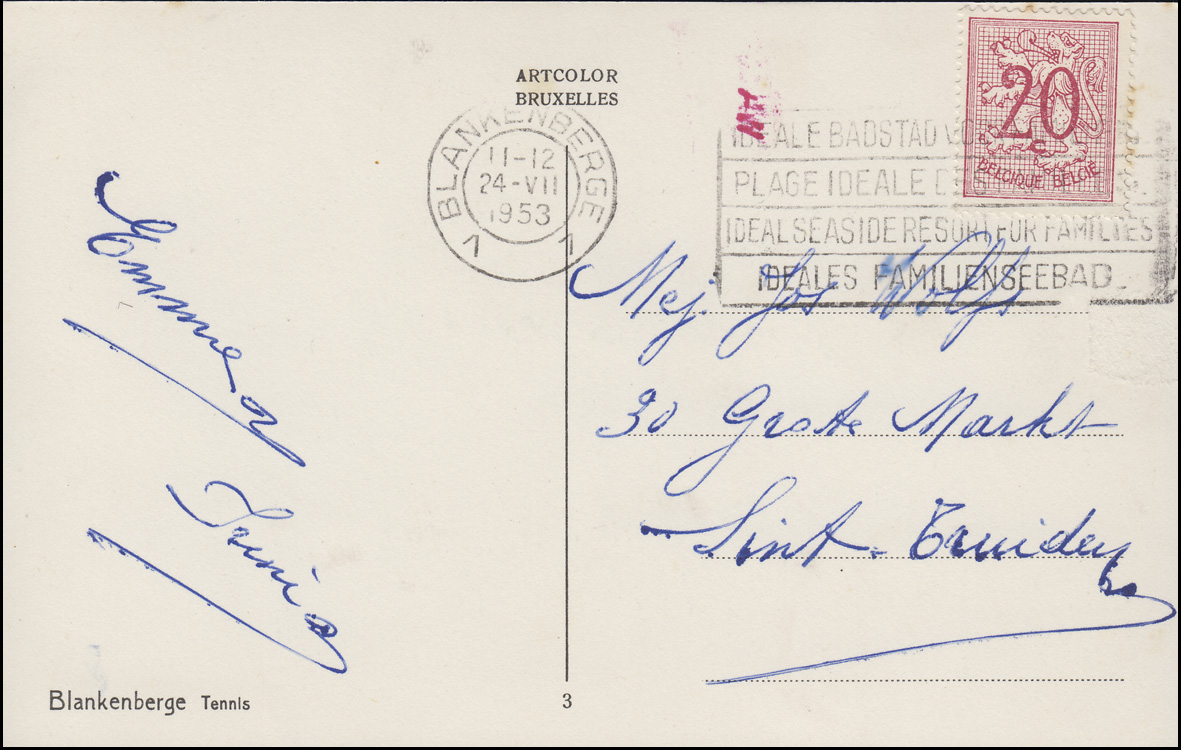 ARTCOLOR
BRUXELLES
BLANKENBERGE
11-12
24-VII
1953
1 1
IDEALE BADSTAD VO
PLAGE IDEALE DES
IDEAL SEASIDE RESORT FOR FAMILIES
IDEALES FAMILIENSEEBAD
20
BELGIQUE BELGIË
Mej. Jos Wolfs
30 Grote Markt
Sint-Truiden
Blankenberge Tennis
3